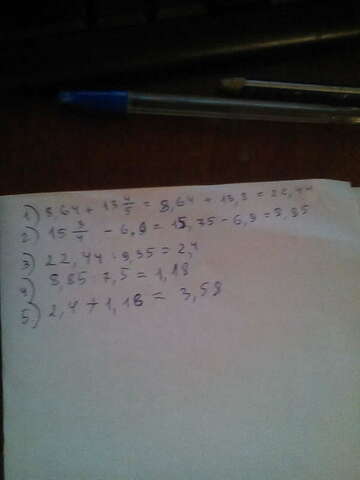 1) 8,64 + 13 4/5 = 8,64 + 13,8 = 22,44
2) 15 3/4 - 6,9 = 15,75 - 6,9 = 8,85
3) 22,44 : 9,35 = 2,4
4) 8,85 : 7,5 = 1,18
5) 2,4 + 1,18 = 3,58